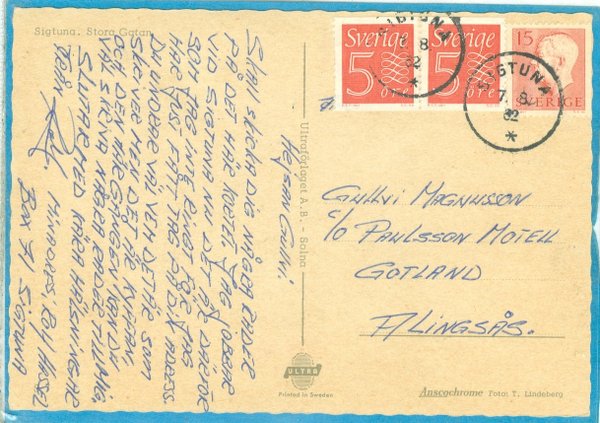 Sigtuna. Stora Gatan
Hejsan Gullvi.
Skall skicka dig några rader
på det här kortet. Jag jobbar
vid Sigtuna nu det är därför
som jag inte ringt för jag
har just fått tag på din adress.
Du undrar väl vem det är som
skriver men det är kirran
på den här gången kan du
väl skriva några rader till mig.
Slutar med kära hälsningar
från
min adress. By
Box 71 Sigtuna
Ultraförlaget A.B. - Solna
ULTRA
Printed in Sweden
Sverige
5
ÖRE
Sverige
5
ÖRE
15
SVERIGE
SIGTUNA
7. 8.
62
*
SIGTUNA
7. 8.
62
*
Gullvi Magnusson
c/o Paulsson Motell
Gotland
Alingsås.
Anscochrome Foto: T. Lindeberg